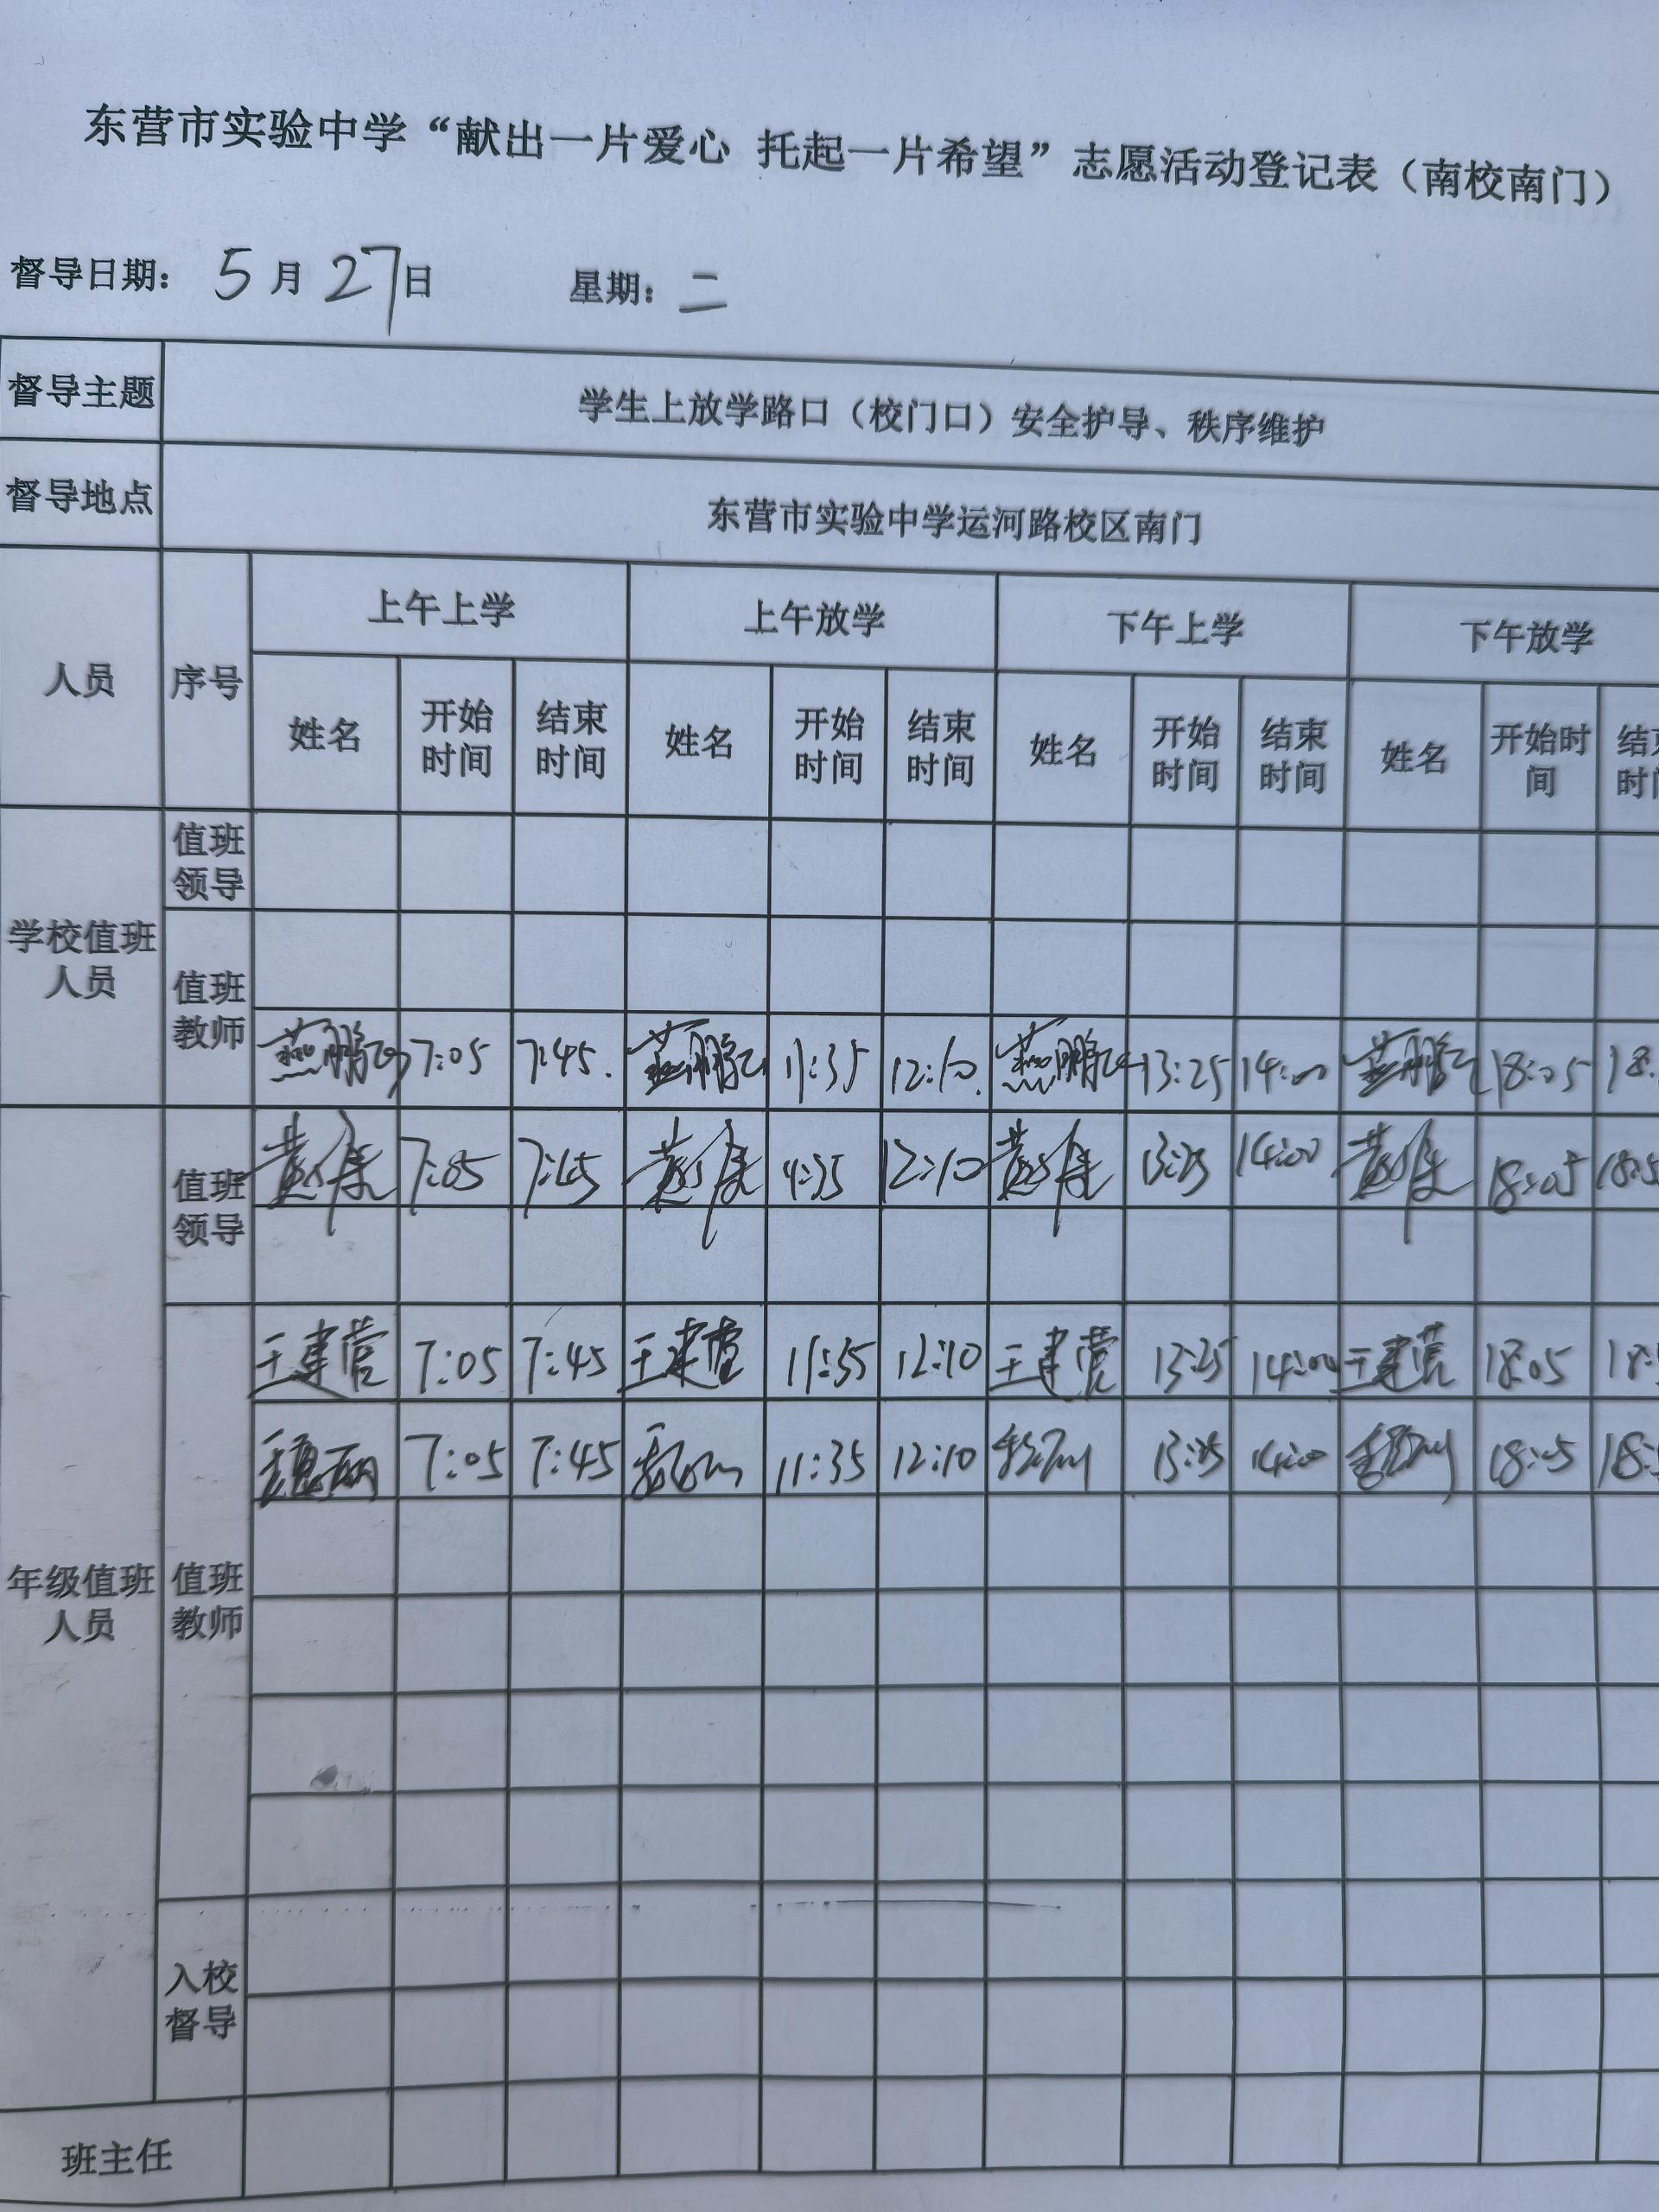 东营市实验中学“献出一片爱心 托起一片希望”志愿活动登记表（南校南门）
督导日期： 5月27日 星期：二
督导主题 学生上放学路口（校门口）安全护导、秩序维护
督导地点 东营市实验中学运河路校区南门
人员 序号 上午上学 上午放学 下午上学 下午放学
姓名 开始时间 结束时间 姓名 开始时间 结束时间 姓名 开始时间 结束时间 姓名 开始时间
学校值班人员 值班领导
值班教师
7:05 7:45. 11:35 12:10. 13:25 14:00 18:05 18:
年级值班人员 值班领导 7:05 7:45 11:35 12:10 13:25 14:00 18:05 18:5
值班教师 王建营 7:05 7:45 王建营 11:35 12:10 王建营 13:25 14:00 王建营 18:05 18:
7:05 7:45 11:35 12:10 13:25 14:00 18:05 18:
入校督导
班主任